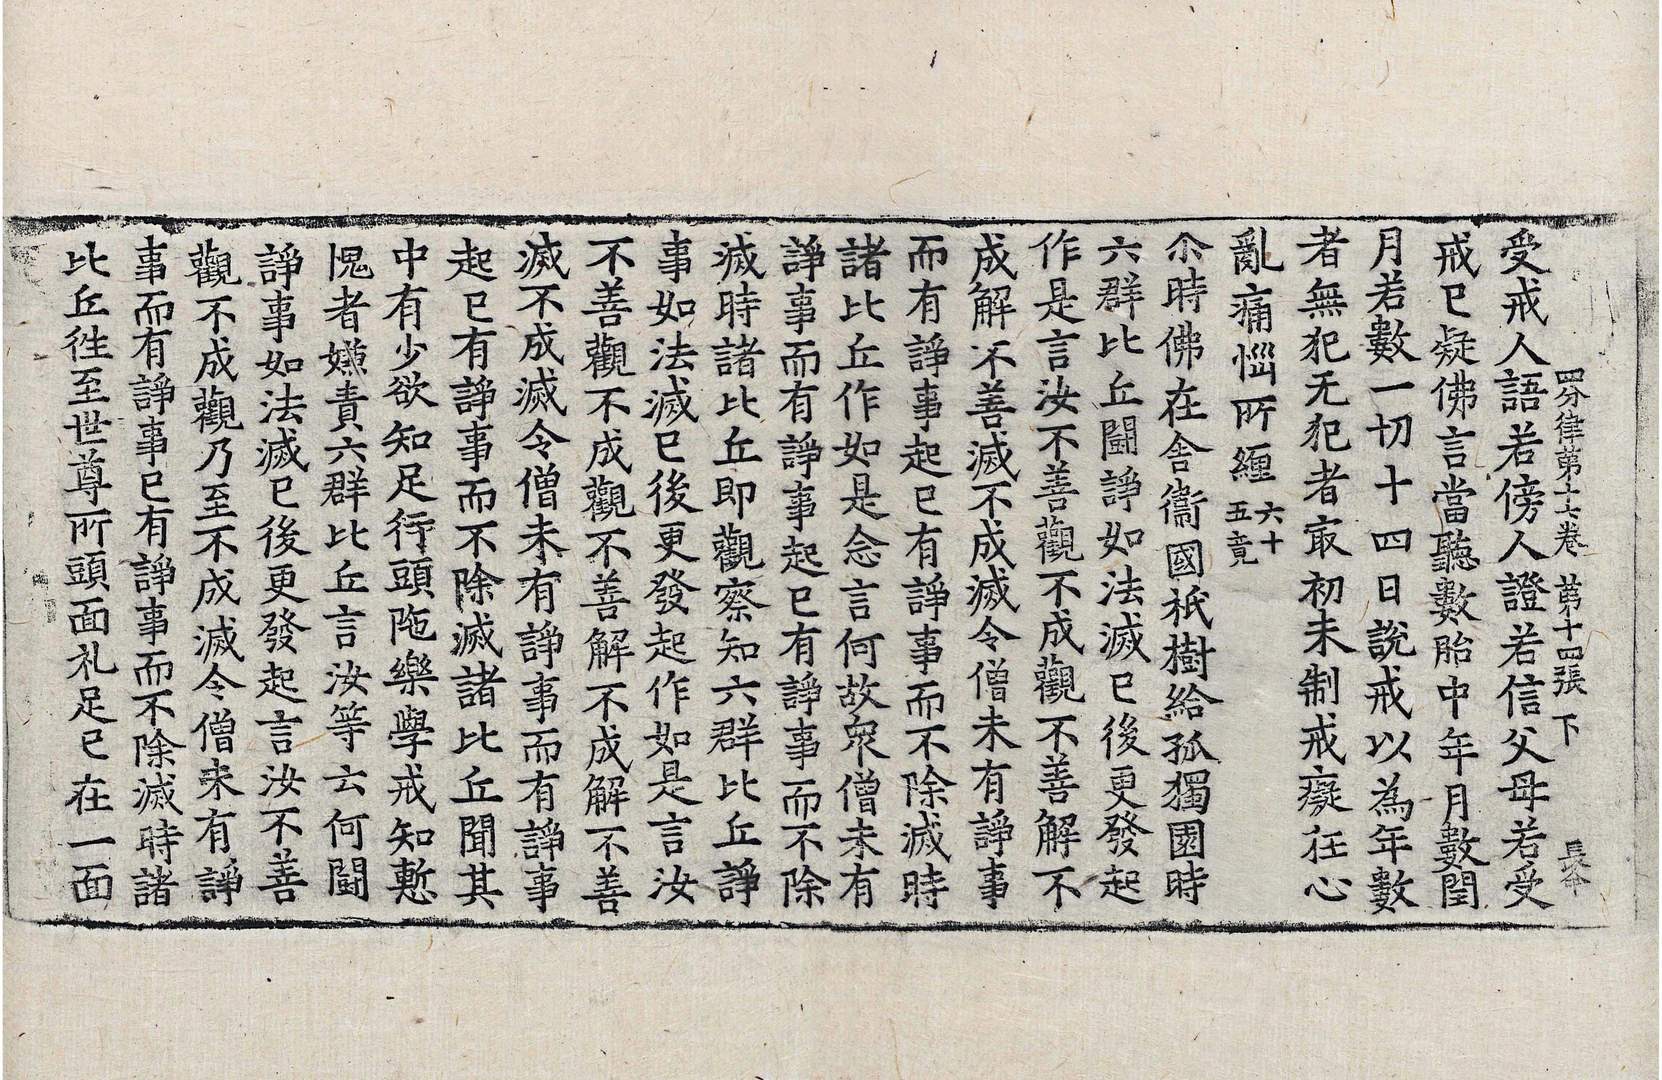 四分律第十七卷 第十四張 下 長命
受戒人語若傍人證若信父母若受
戒已疑佛言當聽數胎中年月數閏
月若數一切十四日說戒以為年數
者無犯无犯者㝡初未制戒癡狂心
亂痛惱所纏六十五竟
尒時佛在舍衛國祇樹給孤獨園時
六群比丘鬪諍如法滅已後更發起
作是言汝不善觀不成觀不善解不
成解不善滅不成滅令僧未有諍事
而有諍事起已有諍事而不除滅時
諸比丘作如是念言何故衆僧未有
諍事而有諍事起已有諍事而不除
滅時諸比丘即觀察知六群比丘諍
事如法滅已後更發起作如是言汝
不善觀不成觀不善解不成解不善
滅不成滅令僧未有諍事而有諍事
起已有諍事而不除滅諸比丘聞其
中有少欲知足行頭陁樂學戒知慙
愧者嫌責六群比丘言汝等云何鬪
諍事如法滅已後更發起言汝不善
觀不成觀乃至不成滅令僧未有諍
事而有諍事已有諍事而不除滅時諸
比丘往至世尊所頭面礼足已在一面